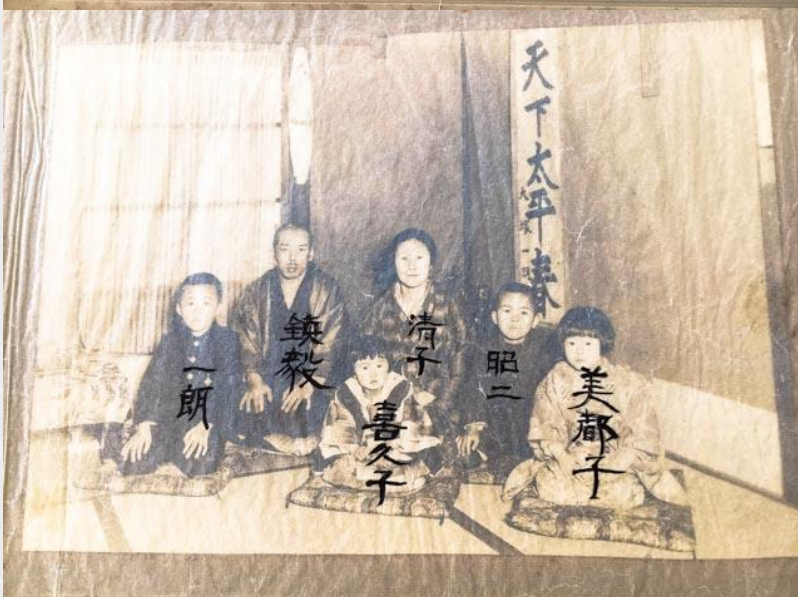 天下太平春
一朗
鎮毅
清子
喜久子
昭二
美都子